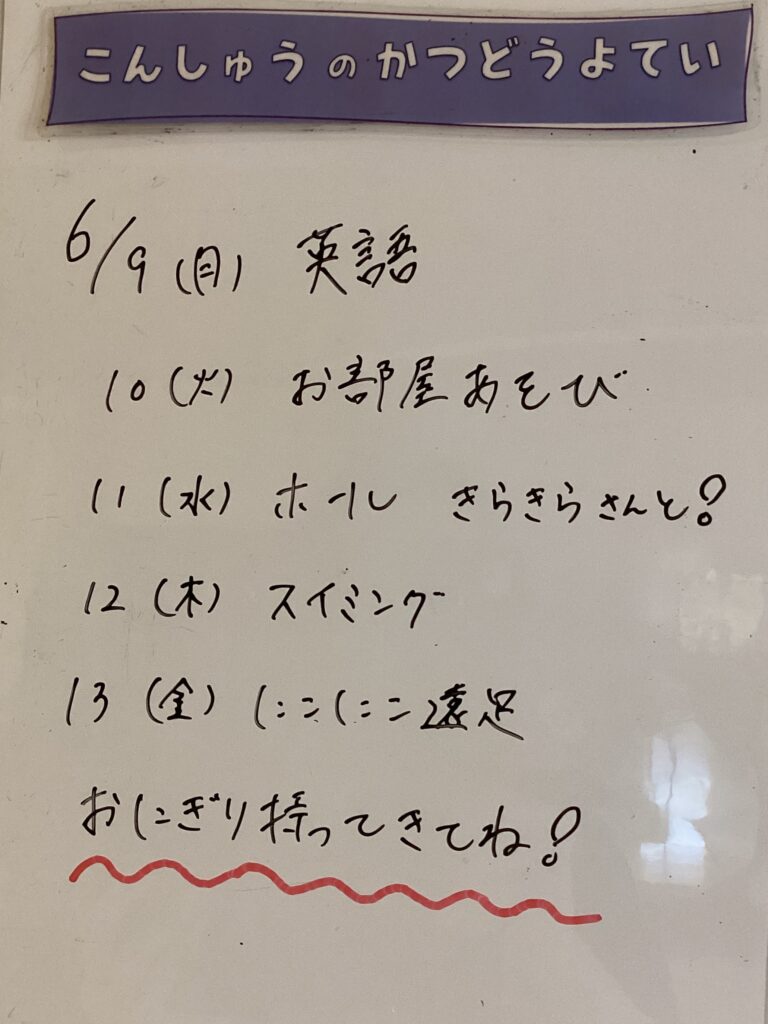 こんしゅうのかつどうよてい
6/9(月) 英語
10(火) お部屋あそび
11(水) ホール きらきらさんと!
12(木) スイミング
13(金) にこにこ遠足
おにぎり持ってきてね!